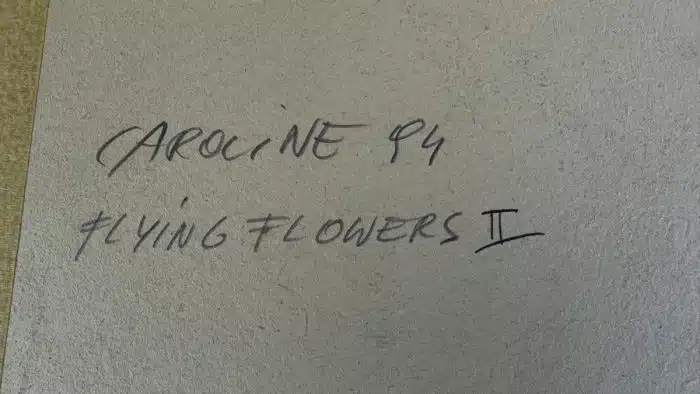 CAROLINE 94
FLYING FLOWERS II